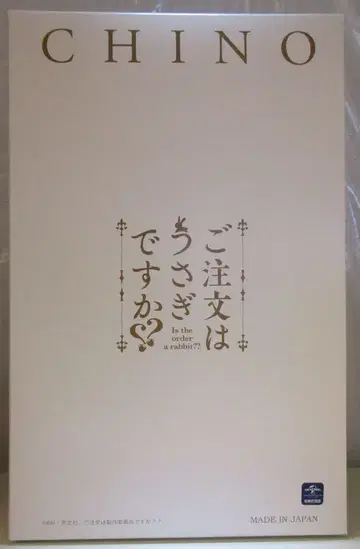 CHINO
ご注文は
うさぎ
ですか??
Is the
order
a rabbit??
MADE IN JAPAN